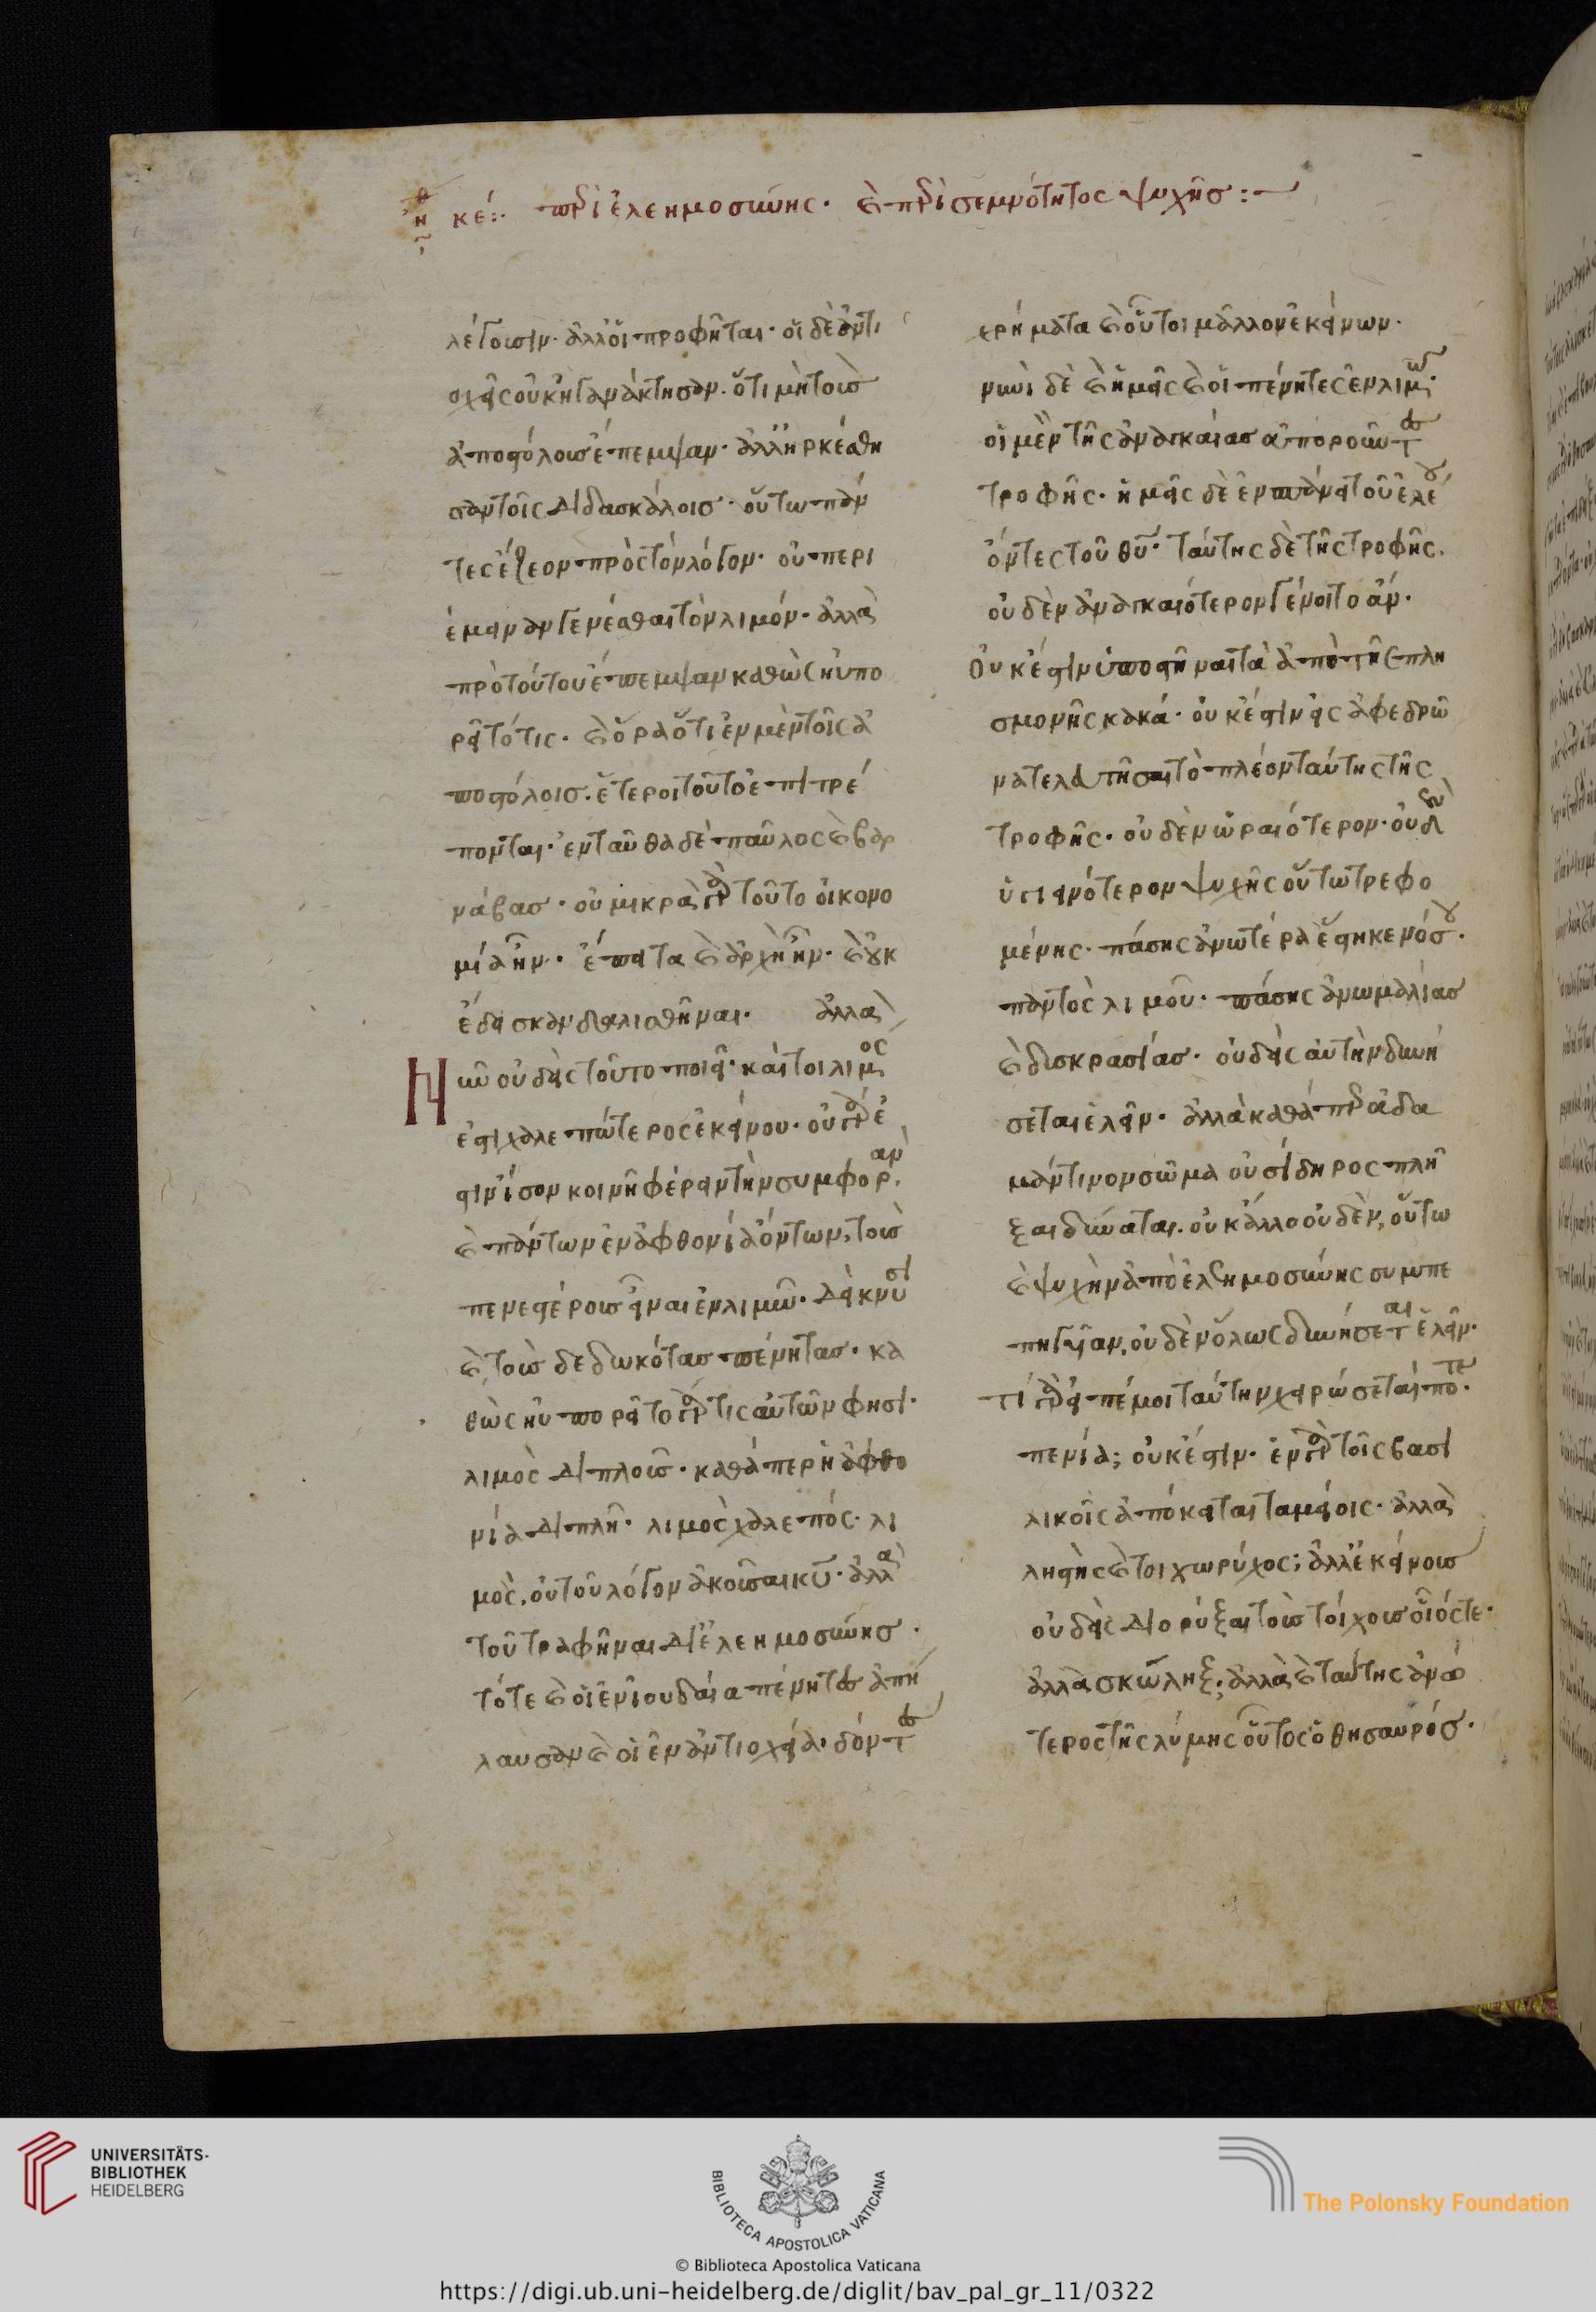 κέ:· περὶ ἐλεημοσύνης· καὶ περὶ σεμνότητος ψυχῆς:~
λέγουσιν· ἀλλ' οἱ προφῆται· οἱ δὲ ἀντι
οχεῖς οὐκ ἠγανάκτησαν· ὅτι μὴ τοὺς
ἀποστόλους ἔπεμψαν· ἀλλ' ἠρκέσθη
σαν τοῖς διδασκάλοις· οὕτω πάν
τες ἔζεον πρὸς τὸν λόγον· οὐ περι
έμειναν γενέσθαι τὸν λιμόν· ἀλλὰ
πρὸ τούτου ἔπεμψαν καθὼς ηὐπο
ρεῖτό τις· καὶ ὅρα ὅτι ἐν μὲν τοῖς ἀ
ποστόλοις· ἕτεροι τοῦτο ἐπιτρέ
πονται· ἐνταῦθα δὲ παῦλος καὶ βαρ
νάβας· οὐ μικρὰ γὰρ τοῦτο οἰκονο
μία ἦν· ἔπειτα καὶ ἀρχὴ ἦν· καὶ οὐκ
ἔδει σκανδαλισθῆναι· ἀλλὰ
Νῦν οὐδεὶς τοῦτο ποιεῖ· καίτοι λιμός
ἐστι χαλεπώτερος ἐκείνου· οὐ γάρ ἐ
στιν ἴσον κοινῇ φέρειν τὴν συμφοράν,
καὶ πάντων ἐν ἀφθονίᾳ ὄντων, τοὺς
πενεστέρους εἶναι ἐν λιμῷ· δείκνυσι
καὶ τοὺς δεδωκότας πένητας· κα
θὼς ηὐπορεῖτο γάρ τις αὐτῶν φησί·
λιμὸς διπλοῦς· καθάπερ ἡ ἀφθο
νία διπλῆ· λιμὸς χαλεπός· λι
μὸς, οὐ τοῦ λόγον ἀκοῦσαι κυ· ἀλλὰ
τοῦ τραφῆναι δι' ἐλεημοσύνης·
τότε καὶ οἱ ἐν ἰουδαία πένητες ἀπή
λαυσαν καὶ οἱ ἐν ἀντιοχεία· δόντες
χρήματα καὶ οὗτοι μᾶλλον ἐκείνων·
νυνὶ δὲ καὶ ἡμεῖς καὶ οἱ πένητες ἐν λιμῷ·
οἱ μὲν τῆς ἀναγκαίας ἀποροῦντες
τροφῆς· ἡμεῖς δὲ ἐν σπάνει τοῦ ἐλέου
ὄντες τοῦ θυ· ταύτης δὲ τῆς τροφῆς·
οὐδὲν ἀναγκαιότερον γένοιτο ἄν·
οὐκ ἔστιν ὑποστῆναι τὰ ἀπὸ τῆς πλη
σμονῆς κακά· οὐκ ἔστιν εἰς ἀφεδρῶ
να τελευτῆσαι τὸ πλέον ταύτης τῆς
τροφῆς· οὐδὲν ὡραιότερον· οὐδὲν
ὑγιεινότερον ψυχῆς οὕτω τρεφο
μένης· πάσης ἀνωτέρα ἕστηκε νόσου·
παντὸς λιμοῦ· πάσης ἀνωμαλίας
καὶ δισκρασίας· οὐδεὶς αὐτὴν δυνή
σεται ἑλεῖν· ἀλλὰ καθάπερ ἀδα
μάντινον σῶμα οὐ σίδηρος πλῆ
ξαι δύναται· οὐκ ἄλλο οὐδὲν, οὕτω
καὶ ψυχὴν ἀπὸ ἐλεημοσύνης συμπε
πηγυῖαν, οὐδὲν ὅλως δυνήσεται ἑλεῖν·
τί γὰρ εἰπέ μοι ταύτην χειρώσεταί ποτε·
πενία; οὐκ ἔστιν· ἐν γὰρ τοῖς βασι
λικοῖς ἀπόκειται ταμείοις· ἀλλὰ
ληστὴς καὶ τοιχωρύχος; ἀλλ' ἐκείνους
οὐδεὶς διορύξαι τοὺς τοίχους οἷός τε·
ἀλλὰ σκώληξ; ἀλλὰ καὶ ταύτης ἀνώ
τερος τῆς λύμης οὗτος ὁ θησαυρός·
UNIVERSITÄTS-
BIBLIOTHEK
HEIDELBERG
BIBLIOTECA APOSTOLICA VATICANA
The Polonsky Foundation
© Biblioteca Apostolica Vaticana
https://digi.ub.uni-heidelberg.de/diglit/bav_pal_gr_11/0322